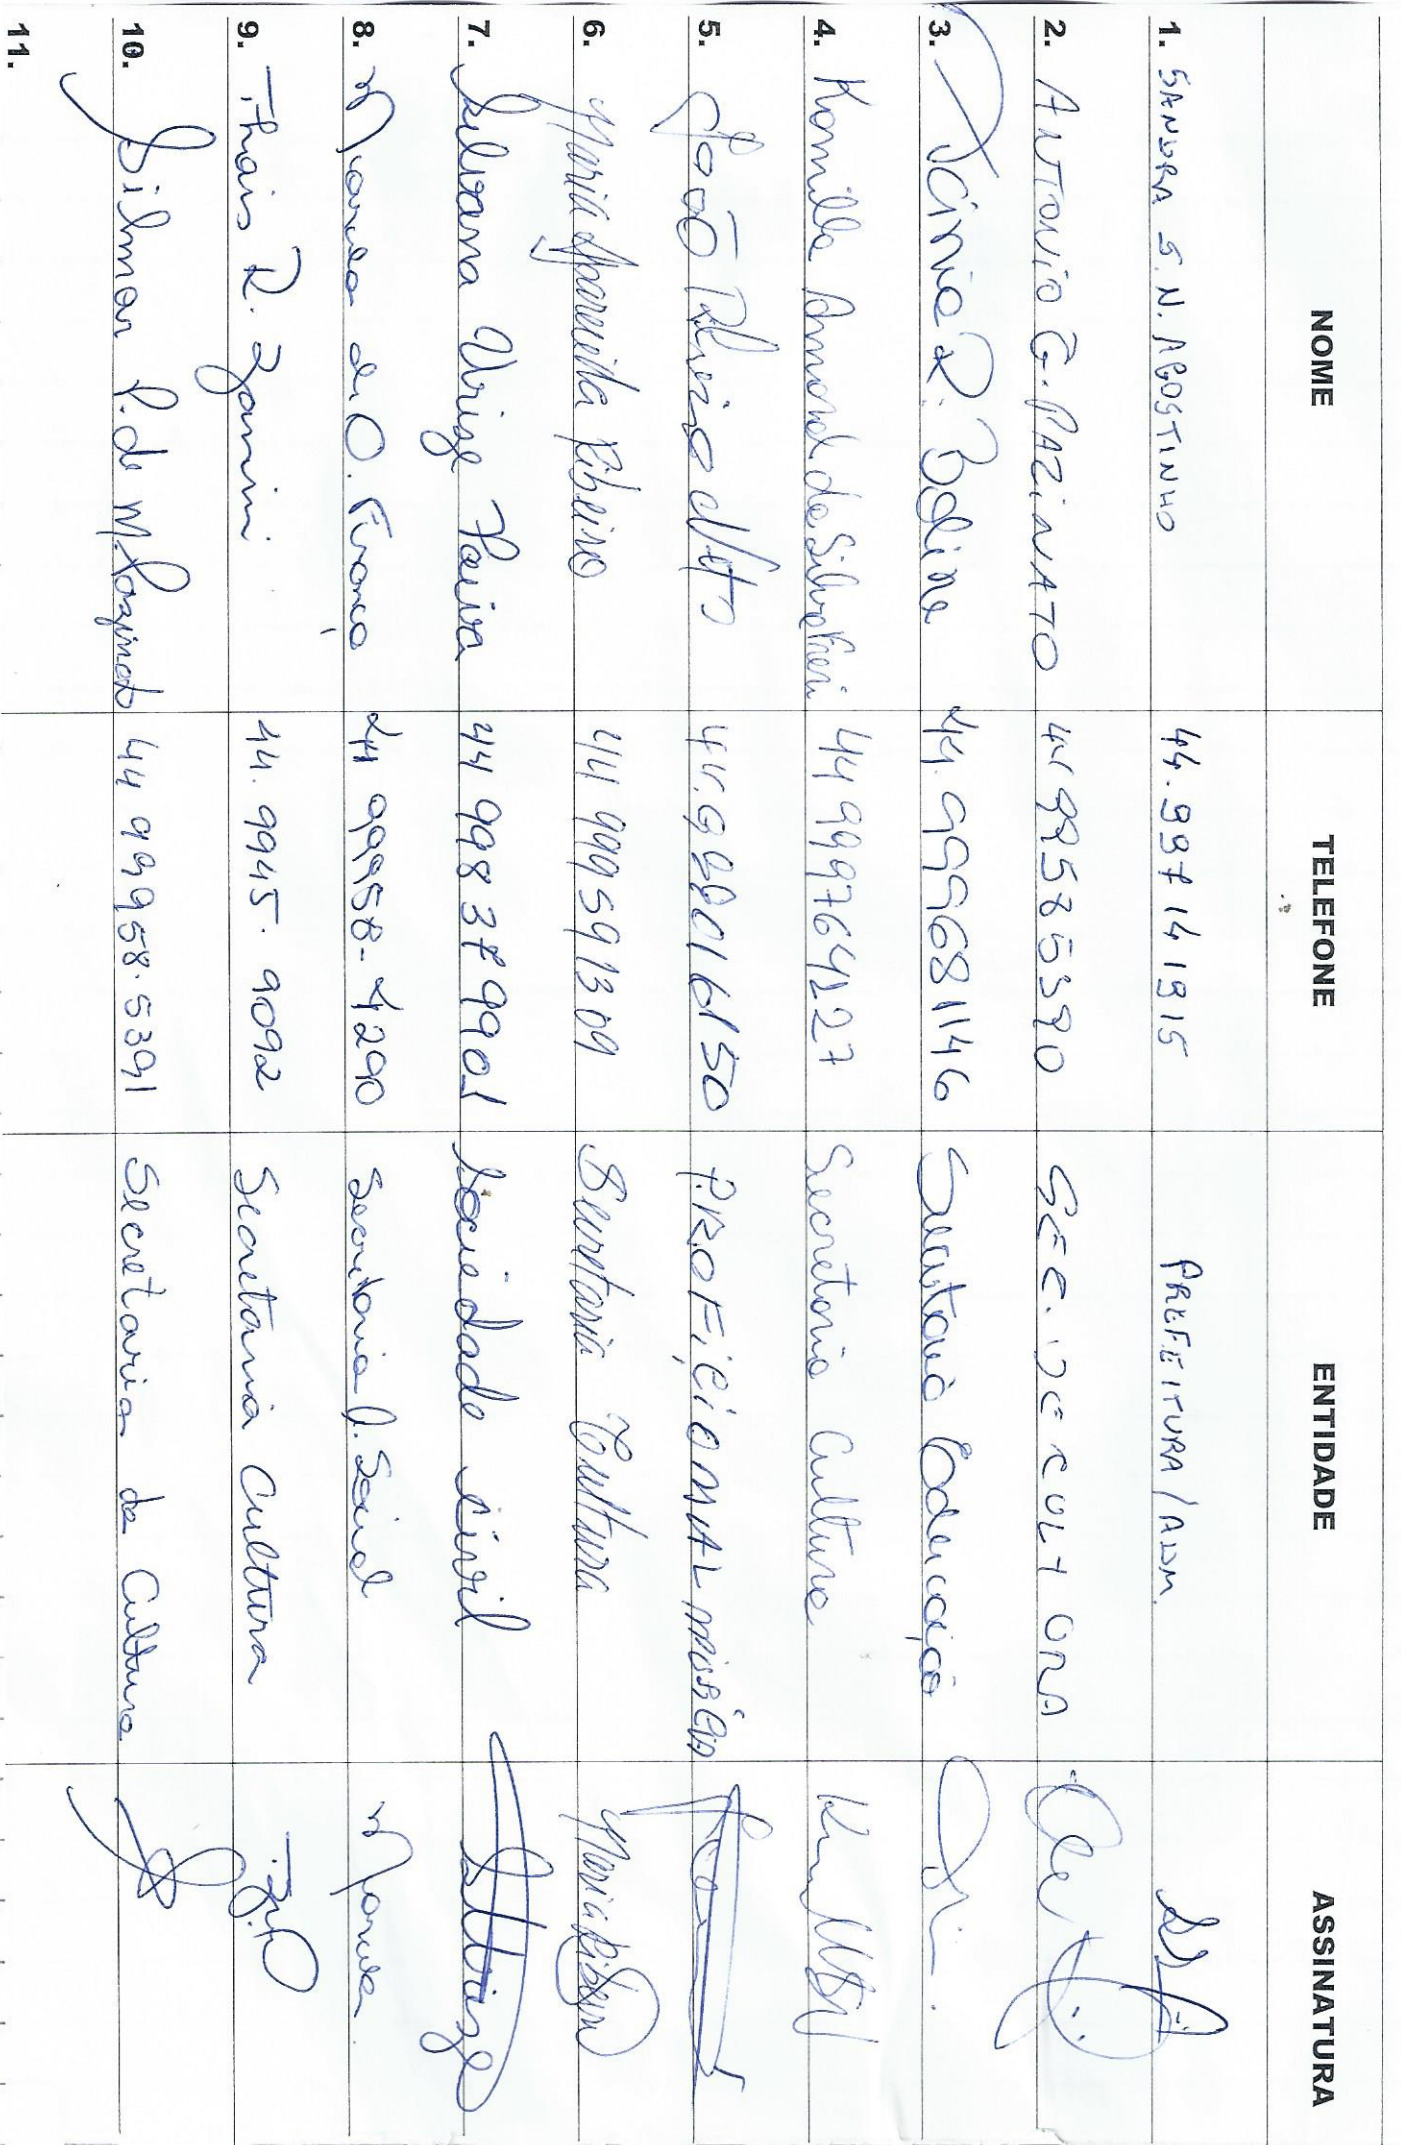 NOME TELEFONE ENTIDADE ASSINATURA
1. SANDRA S.N. AGOSTINHO 44.997141915 PREFEITURA/ADM.
2. ANTONIO G. PAZINATO 44 995855390 SEC. DE CULTURA
3. R. 44.999681146 Secretaria Educação
4. Kamilla Amanda da Silva 44 999764227 Secretaria Cultura
5. João Neto PROFICIONAL MUSICA
6. Maria Aparecida Ribeiro 44 999591309 Secretaria Cultura Maria Ribeiro
7. Paiva 44 998379901 Sociedade civil
8. Marcela de O. França 44 99958-4290 Secretaria A. Social Marcela
9. Thais R. Zanini 44. 9945. 9092 Secretaria Cultura
10. Silmar P. de M. Pazinato 44 99958.5391 Secretaria da Cultura
11.